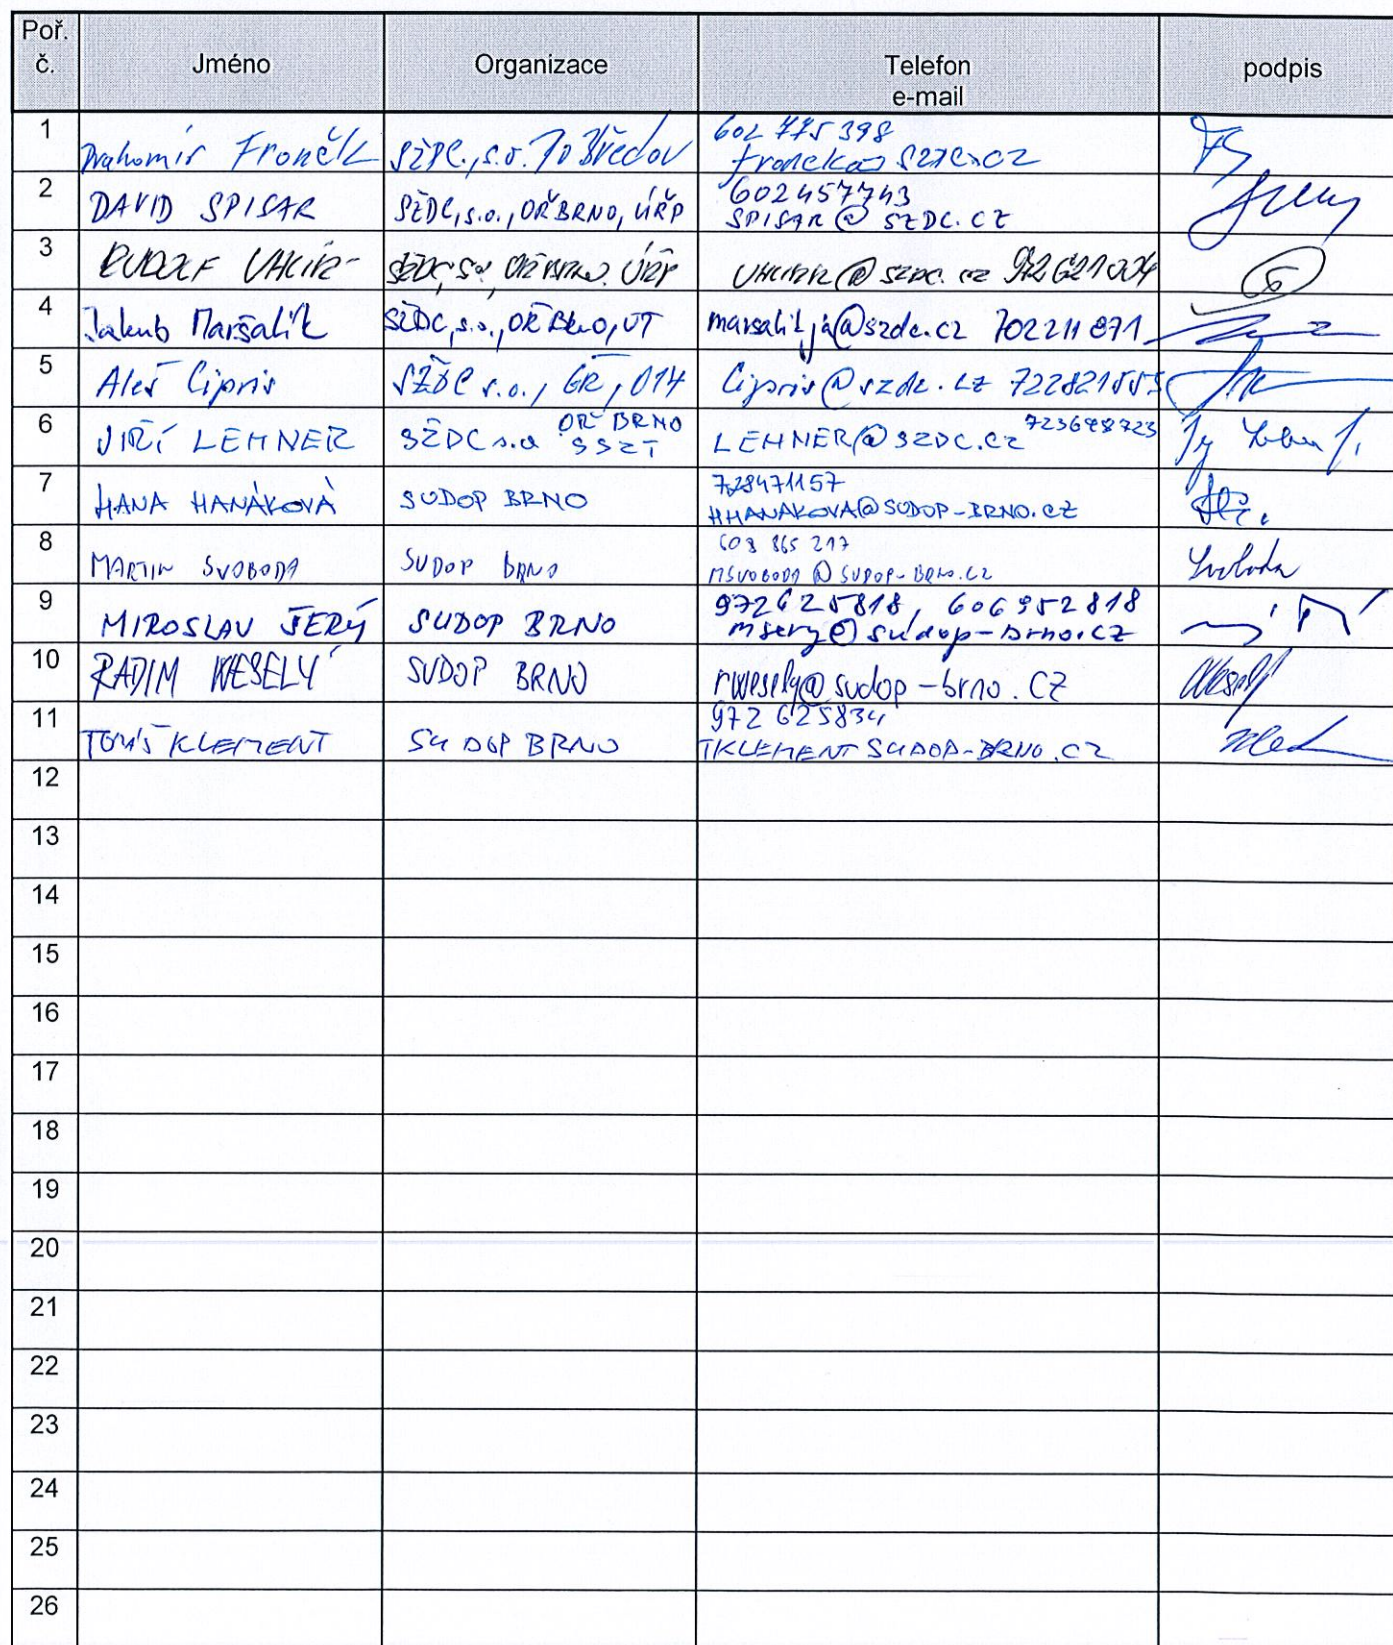 Poř.
č. Jméno Organizace Telefon
e-mail podpis
1 Drahomír Fronček SŽDC, s.o. PO Břeclav 602 775 398
fronek@szdc.cz
2 DAVID SPISAR SŽDC, s.o., OŘ BRNO, ÚŘP 602457743
SPISAR @ SZDC.CZ
3 RUDOLF UHLÍŘ SŽDC, s.o., OŘ BRNO, ÚŘP UHLIRR @ SZDC.CZ 972621004
4 Jakub Maršalík SŽDC, s.o., OŘ Brno, ÚT marsalikja@szdc.cz 702211871
5 Aleš Cipris SŽDC s.o., GŘ, O14 Cipris@szdc.cz
6 JIŘÍ LEHNER SŽDC s.o OŘ BRNO
SSZT LEHNER@SZDC.CZ
7 HANA HANÁKOVÁ SUDOP BRNO 728471157
HHANAKOVA@SUDOP-BRNO.CZ
8 MARTIN SVOBODA SUDOP BRNO 603 865 217
MSVOBODA @ SUDOP-BRNO.CZ Svoboda
9 MIROSLAV ŠERÝ SUDOP BRNO 972625818, 606952818
msery@sudop-brno.cz
10 RADIM WESELÝ SUDOP BRNO rwesely@sudop-brno.CZ Weselý
11 TOMÁŠ KLEMENT SUDOP BRNO 972 625834
TKLEMENT SUDOP-BRNO.CZ
12
13
14
15
16
17
18
19
20
21
22
23
24
25
26